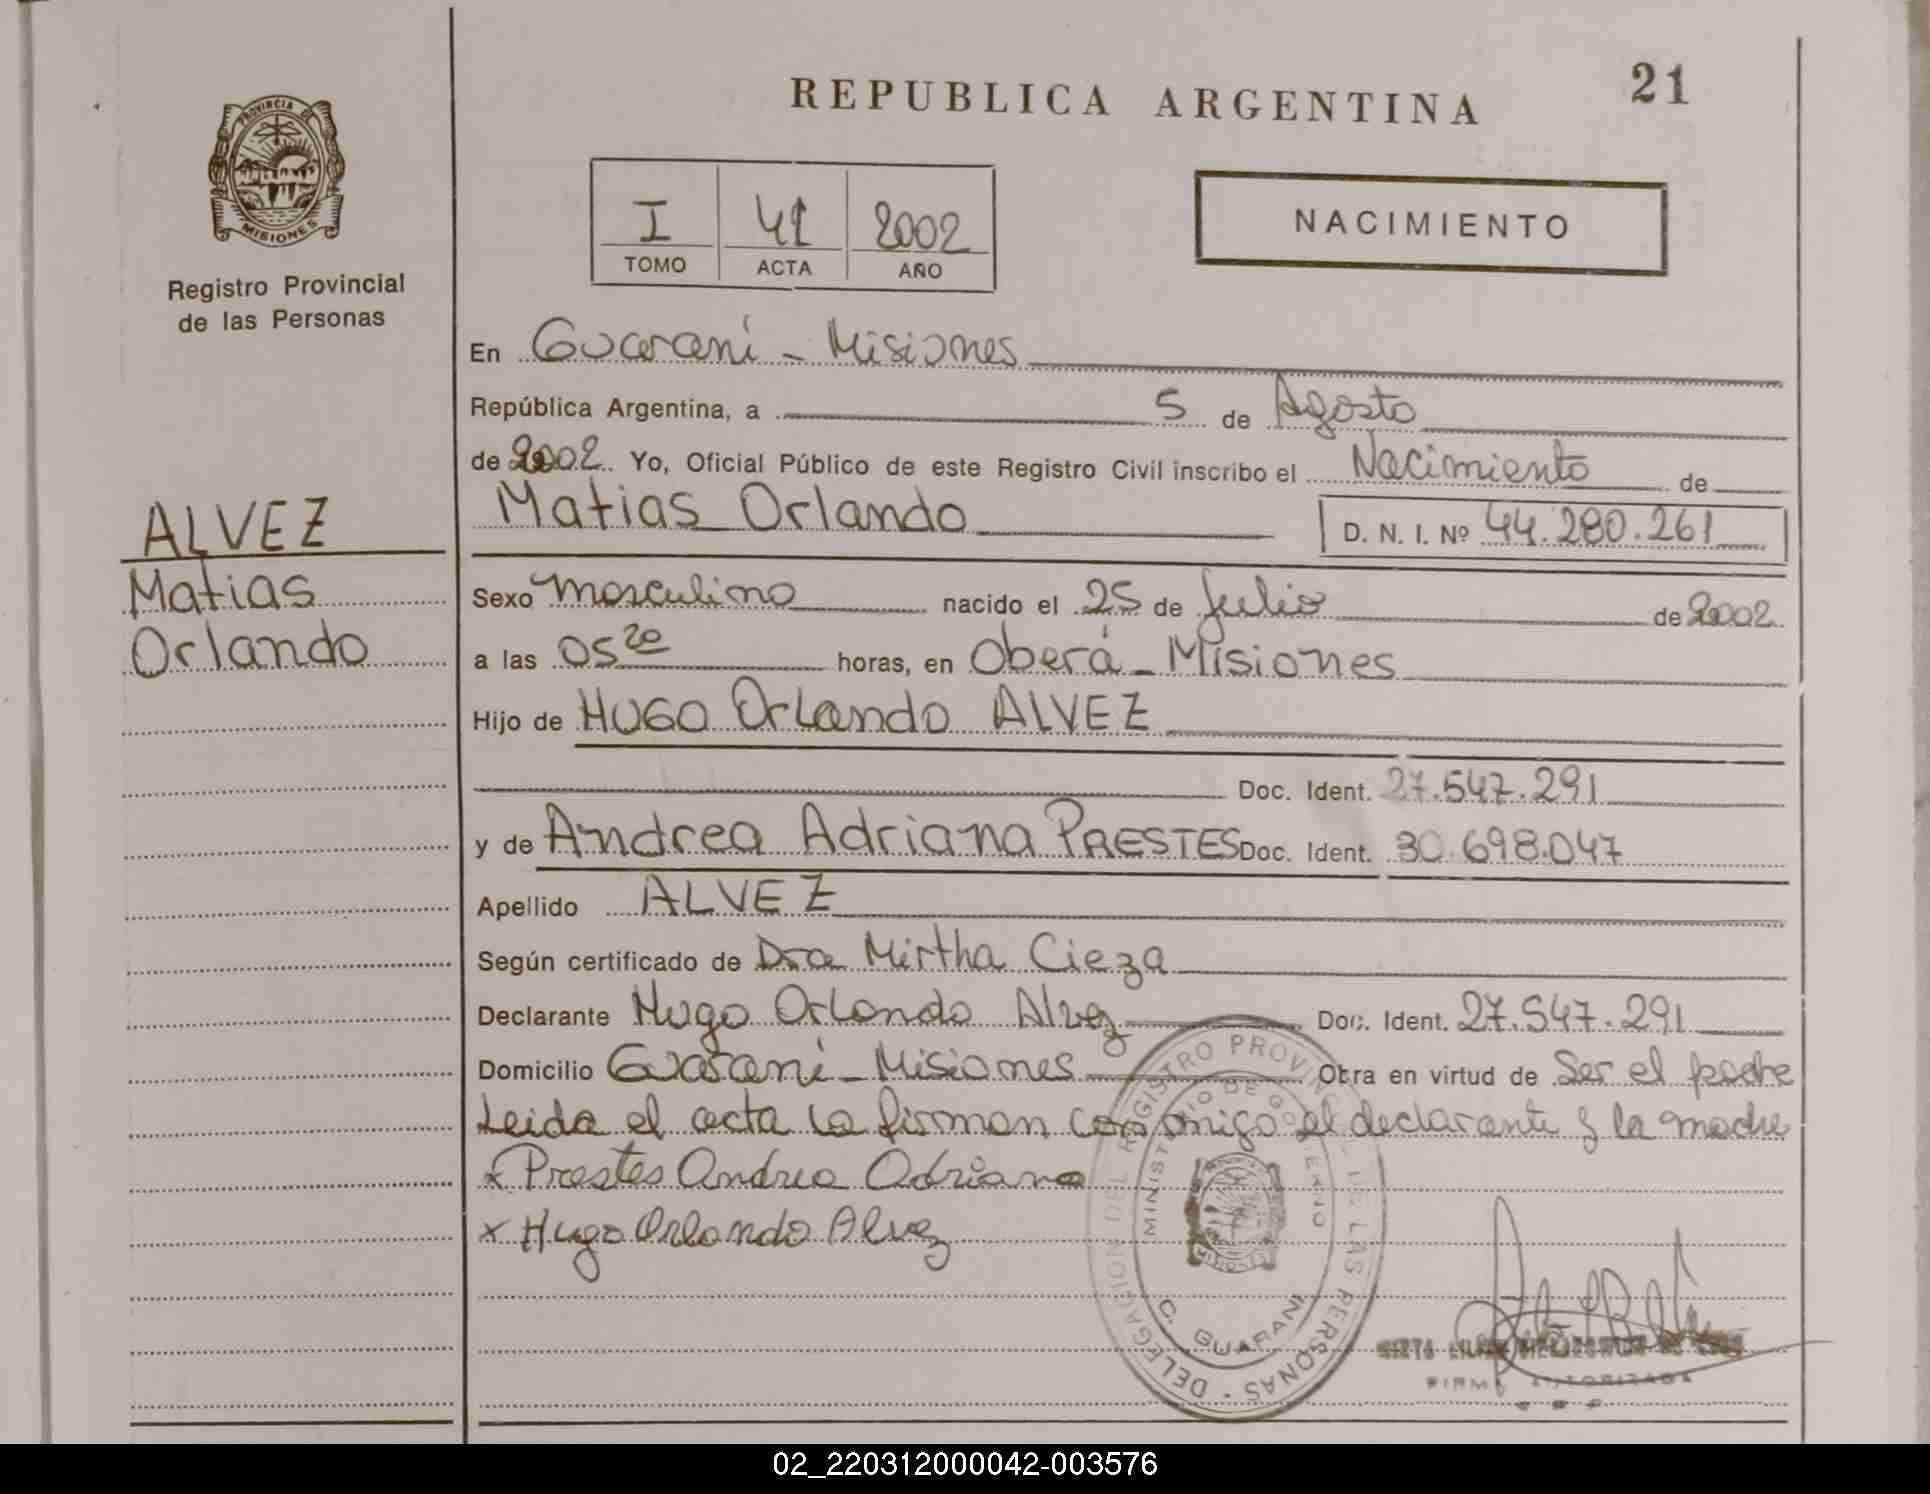 REPUBLICA ARGENTINA
21
PROVINCIA DE
MISIONES
Registro Provincial
de las Personas
I 41 2002
TOMO ACTA AÑO
NACIMIENTO
En Guarani - Misiones
República Argentina, a 5 de Agosto
de 2002. Yo, Oficial Público de este Registro Civil inscribo el Nacimiento de
Matias Orlando D. N. I. Nº 44.280.261
ALVEZ
Matias
Orlando
Sexo masculino nacido el 25 de Julio de 2002
a las 05 20 horas, en Oberá - Misiones
Hijo de HUGO Orlando ALVEZ
Doc. Ident. 27.547.291
y de Andrea Adriana PRESTES Doc. Ident. 30.698.047
Apellido ALVEZ
Según certificado de Dra Mirtha Cieza
Declarante Hugo Orlando Alvez Doc. Ident. 27.547.291
Domicilio Guarani - Misiones Obra en virtud de Ser el padre
Leida el acta la firman conmigo el declarante y la madre
x Prestes Andrea Adriana
x Hugo Orlando Alvez
DELEGACION DEL REGISTRO PROVINCIAL DE LAS PERSONAS
MINISTERIO DE GOBIERNO
C. GUARANI
FIRMA AUTORIZADA
02_220312000042-003576